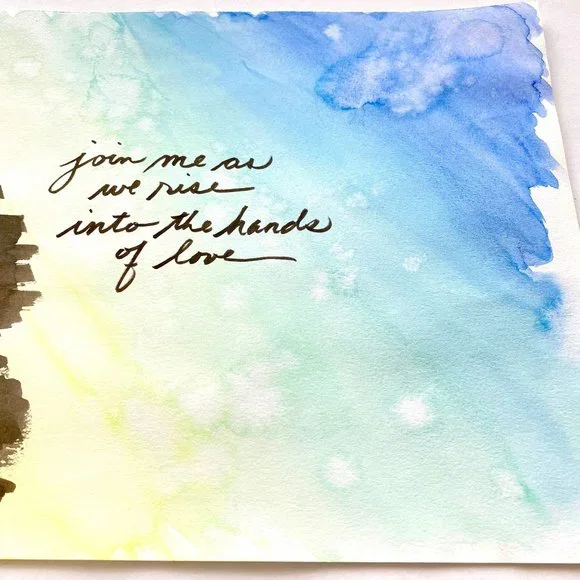 join me as
we rise
into the hands
of love